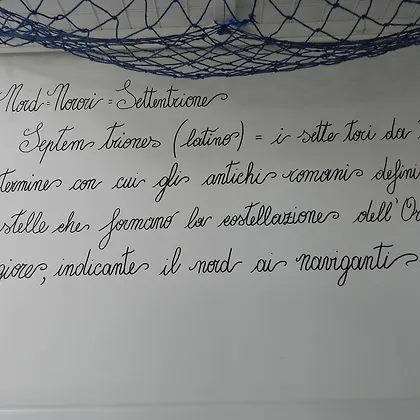 Nord = Nord = Settentrione
Septem triones (latino) = i sette tori da
termine con cui gli antichi romani defini
stelle che formano la costellazione dell'Or
giore, indicante il nord ai naviganti